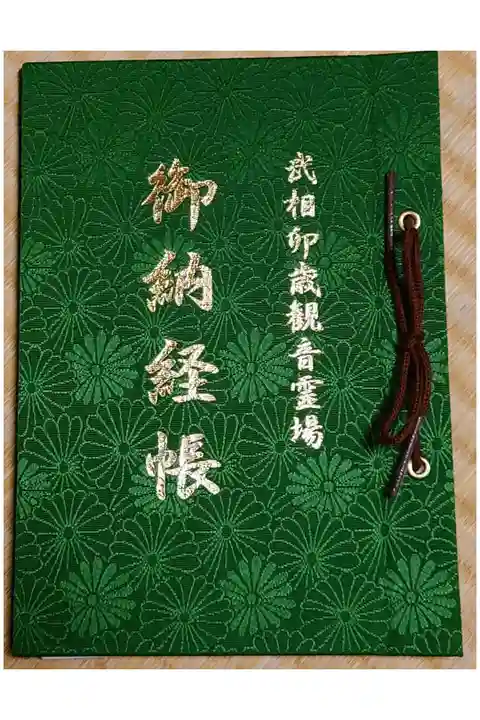 武相卯歳観音霊場
御納経帳